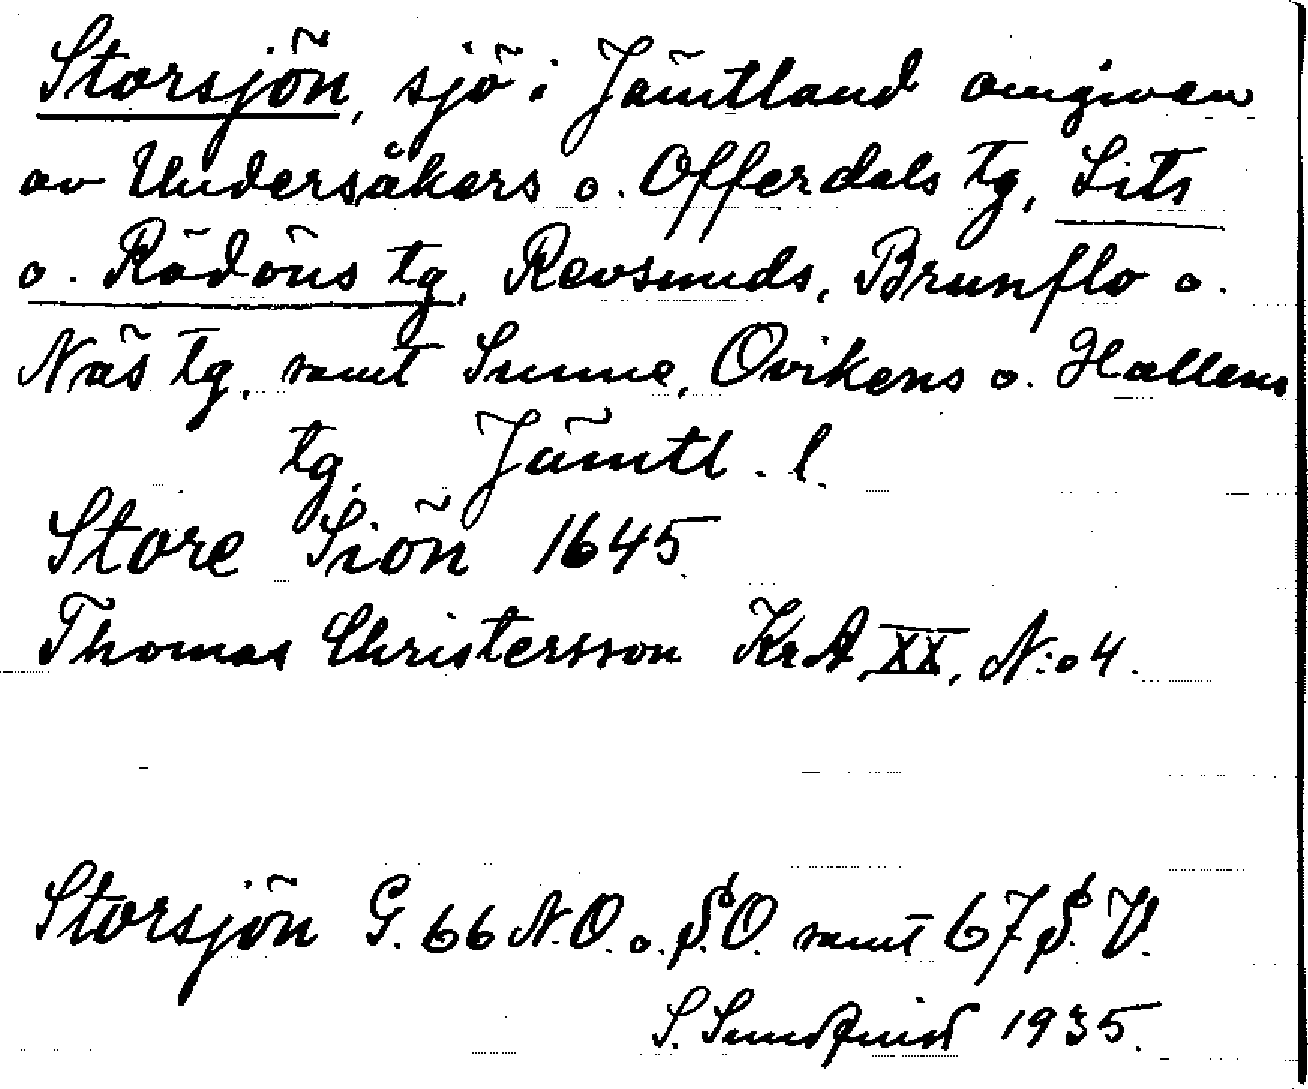 Storsjön, sjö i Jämtland omgiven
av Undersåkers o. Offerdals tg, Lits
o. Rödöns tg, Revsunds, Brunflo o.
Näs tg, samt Sunne, Ovikens o. Hallens
tg. Jämtl. l.
Store Siön 1645.
Thomas Christersson KrA, XX, N:o 4.
Storsjön G. 66 N.O. o. S.O. samt 67 S.V.
S. Sundqvist 1935.